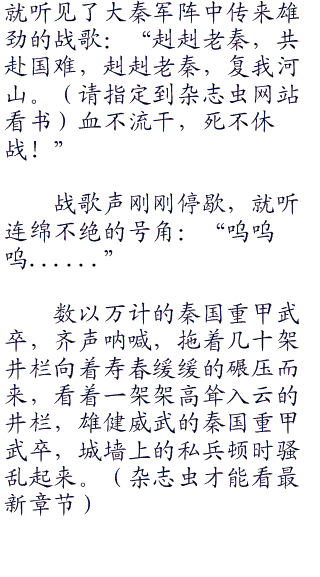 就听见了大秦军阵中传来雄
劲的战歌：“赳赳老秦，共
赴国难，赳赳老秦，复我河
山。（请指定到杂志虫网站
看书）血不流干，死不休
战！”
战歌声刚刚停歇，就听
连绵不绝的号角：“呜呜
呜......”
数以万计的秦国重甲武
卒，齐声呐喊，拖着几十架
井栏向着寿春缓缓的碾压而
来，看着一架架高耸入云的
井栏，雄健威武的秦国重甲
武卒，城墙上的私兵顿时骚
乱起来。（杂志虫才能看最
新章节）